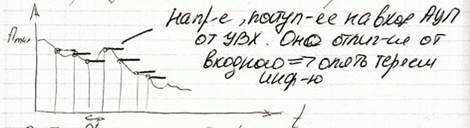 A
Amax
напр-е, поступ-ее на вход АЦП
от УВХ. Оно отлич-ся от
входного => опять теряем
инф-ю
t